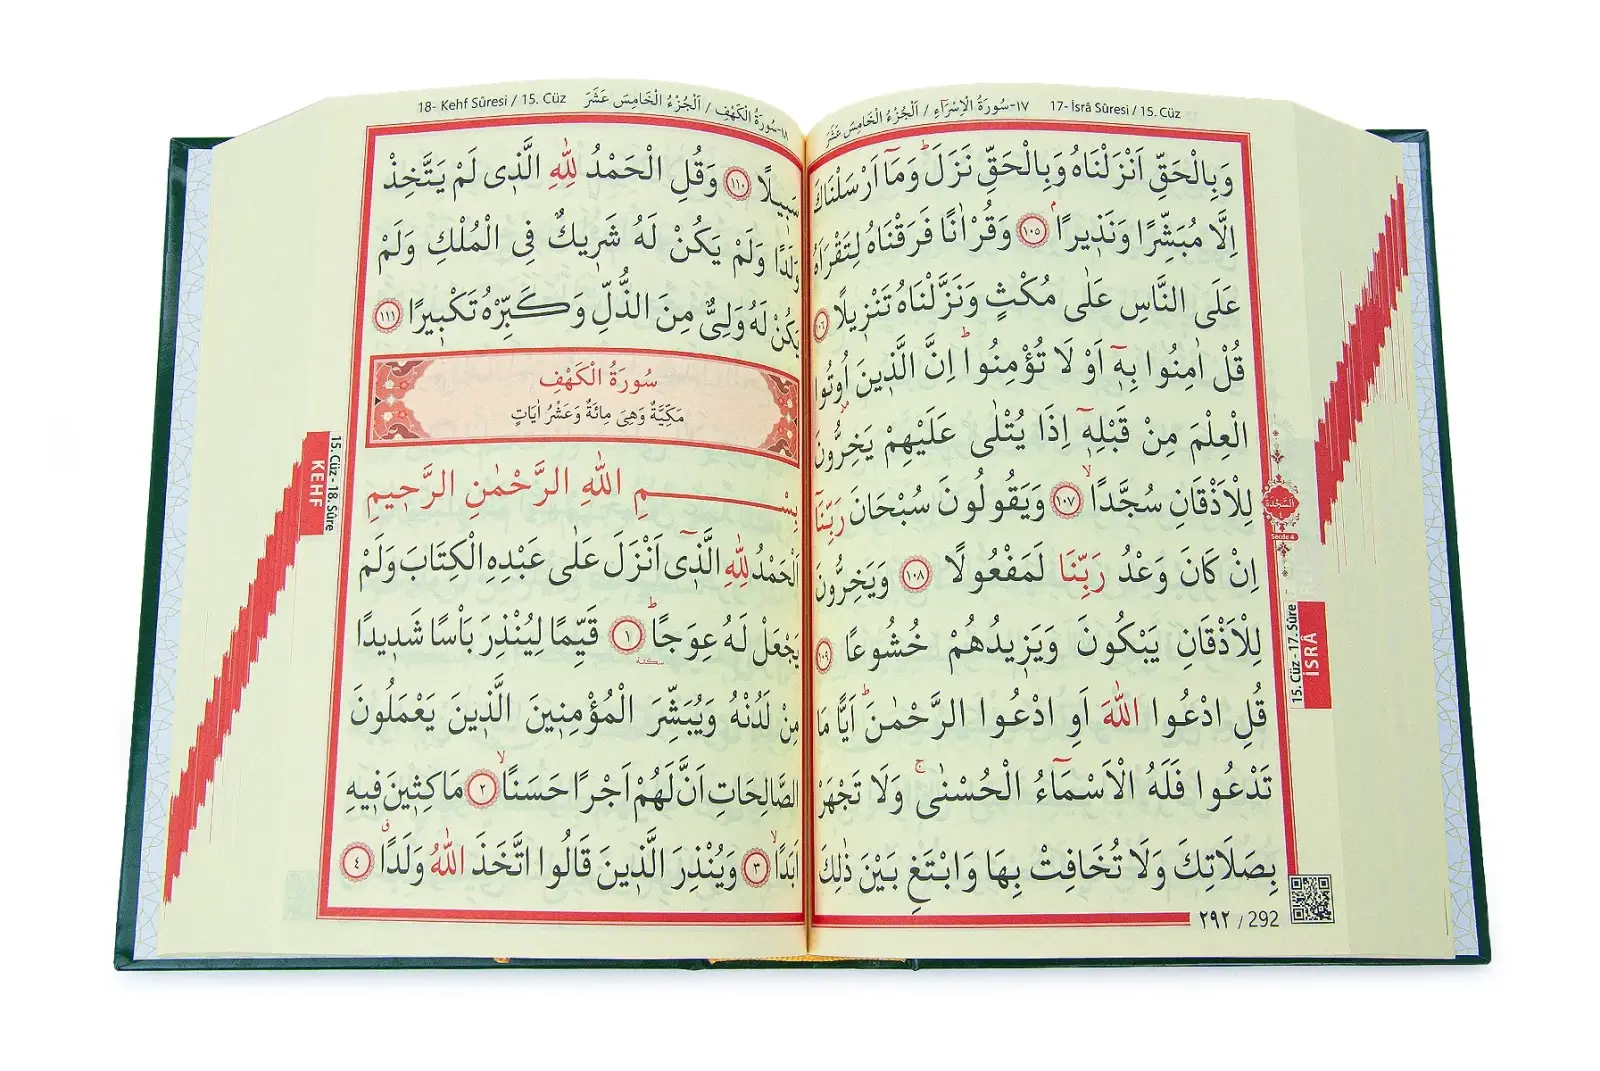 ١٧-سُورَةُ الْاِسْرَٓاءِ / اَلْجُزْءُ الْخَامِسَ عَشَرَ 17- İsrâ Sûresi / 15. Cüz
وَبِالْحَقِّ اَنْزَلْنَاهُ وَبِالْحَقِّ نَزَلَۜ وَمَٓا اَرْسَلْنَاكَ
اِلَّا مُبَشِّرًا وَنَذٖيرًاۢ ﴿١٠٥﴾ وَقُرْاٰنًا فَرَقْنَاهُ لِتَقْرَاَهُ
عَلَى النَّاسِ عَلٰى مُكْثٍ وَنَزَّلْنَاهُ تَنْزٖيلًا ﴿١٠٦﴾
قُلْ اٰمِنُوا بِهٖٓ اَوْ لَا تُؤْمِنُواۜ اِنَّ الَّذٖينَ اُوتُوا
الْعِلْمَ مِنْ قَبْلِهٖٓ اِذَا يُتْلٰى عَلَيْهِمْ يَخِرُّونَ
لِلْاَذْقَانِ سُجَّدًاۙ ﴿١٠٧﴾ وَيَقُولُونَ سُبْحَانَ رَبِّنَٓا
اِنْ كَانَ وَعْدُ رَبِّنَا لَمَفْعُولًا ﴿١٠٨﴾ وَيَخِرُّونَ
لِلْاَذْقَانِ يَبْكُونَ وَيَزٖيدُهُمْ خُشُوعًا ﴿١٠٩﴾
قُلِ ادْعُوا اللّٰهَ اَوِ ادْعُوا الرَّحْمٰنَۜ اَيًّا مَا
تَدْعُوا فَلَهُ الْاَسْمَٓاءُ الْحُسْنٰىۚ وَلَا تَجْهَرْ
بِصَلَاتِكَ وَلَا تُخَافِتْ بِهَا وَابْتَغِ بَيْنَ ذٰلِكَ
اَلسَّجْدَة
٤
Secde 4
15. Cüz - 17. Sûre
İSRÂ
٢٩٢ / 292
18- Kehf Sûresi / 15. Cüz ١٨-سُورَةُ الْكَهْفِ / اَلْجُزْءُ الْخَامِسَ عَشَرَ
سَبٖيلًا ﴿١١٠﴾ وَقُلِ الْحَمْدُ لِلّٰهِ الَّذٖى لَمْ يَتَّخِذْ
وَلَدًا وَلَمْ يَكُنْ لَهُ شَرٖيكٌ فِى الْمُلْكِ وَلَمْ
يَكُنْ لَهُ وَلِىٌّ مِنَ الذُّلِّ وَكَبِّرْهُ تَكْبٖيرًا ﴿١١١﴾
سُورَةُ الْكَهْفِ
مَكِّيَّةٌ وَهِىَ مِائَةٌ وَعَشْرُ اٰيَاتٍ
بِسْمِ اللّٰهِ الرَّحْمٰنِ الرَّحٖيمِ
اَلْحَمْدُ لِلّٰهِ الَّذٖٓى اَنْزَلَ عَلٰى عَبْدِهِ الْكِتَابَ وَلَمْ
يَجْعَلْ لَهُ عِوَجًاۜ ﴿١﴾ سكتة قَيِّمًا لِيُنْذِرَ بَاْسًا شَدٖيدًا
مِنْ لَدُنْهُ وَيُبَشِّرَ الْمُؤْمِنٖينَ الَّذٖينَ يَعْمَلُونَ
الصَّالِحَاتِ اَنَّ لَهُمْ اَجْرًا حَسَنًاۙ ﴿٢﴾ مَاكِثٖينَ فٖيهِ
اَبَدًاۙ ﴿٣﴾ وَيُنْذِرَ الَّذٖينَ قَالُوا اتَّخَذَ اللّٰهُ وَلَدًاۗ ﴿٤﴾
15. Cüz - 18. Sûre
KEHF